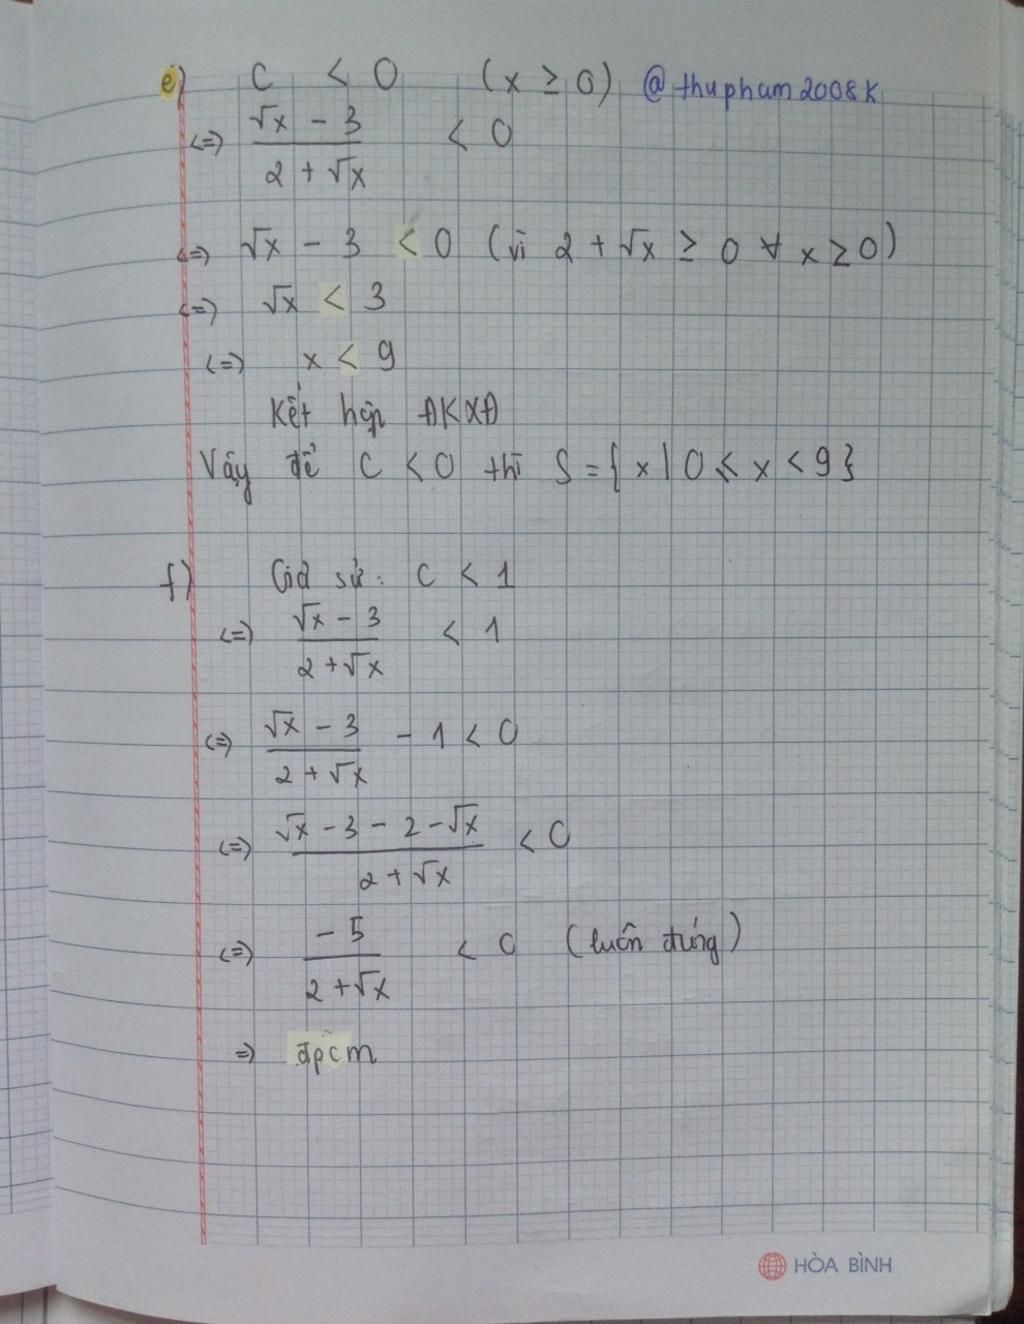 e) C < 0 (x ≥ 0) @thupham2008k
<=> (√x - 3)/(2 + √x) < 0
<=> √x - 3 < 0 (vì 2 + √x ≥ 0 ∀ x ≥ 0)
<=> √x < 3
<=> x < 9
Kết hợp ĐKXĐ
Vậy để C < 0 thì S = {x | 0 ≤ x < 9}
f) Giả sử: C < 1
<=> (√x - 3)/(2 + √x) < 1
<=> (√x - 3)/(2 + √x) - 1 < 0
<=> (√x - 3 - 2 - √x)/(2 + √x) < 0
<=> (-5)/(2 + √x) < 0 (luôn đúng)
=> đpcm
HÒA BÌNH